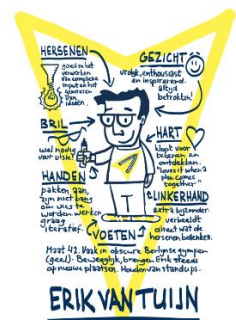 HERSENEN
goed in het
verwerken
van complexe
input en het
genereren
van
ideeën.
GEZICHT
vrolijk, enthousiast
en inspirerend.
altijd
betrokken!
BRIL
wel nodig
voor visie!
HART
klopt voor
tekenen en
ontdekken.
"loves it when a
plan comes
together"
HANDEN
pakken aan,
zijn niet bang
om vies te
worden. werken
graag
iteratief.
LINKERHAND
extra bijzonder:
verbeeldt
direct wat de
hersenen bedenken.
VOETEN
Maat 42. Vaak in obscure Berlijnse gympen
(geel). Beweeglijk, brengen Erik steeds
op nieuwe plaatsen. Houden van standups.
ERIK VAN TUIJN